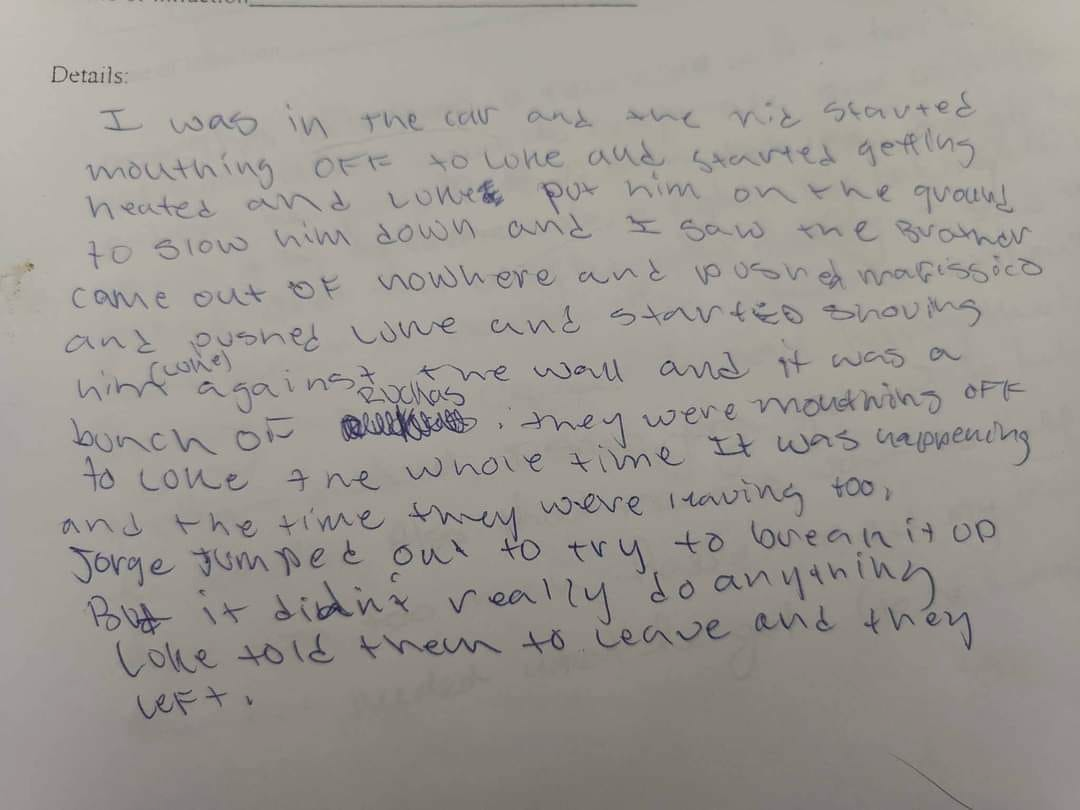 Details:
I was in the car and the kid started
mouthing OFF to Luke and started getting
heated and Luke put him on the ground
to slow him down and I saw the Brother
came out of nowhere and pushed
and pushed Luke and started shoving
(Luke)
him against the wall and it was a
bunch of . they were mouthing off
to Luke the whole time It was happening
and the time they were leaving too,
Jorge Jumped out to try to break it up
But it didn't really do anything
Luke told them to leave and they
left.